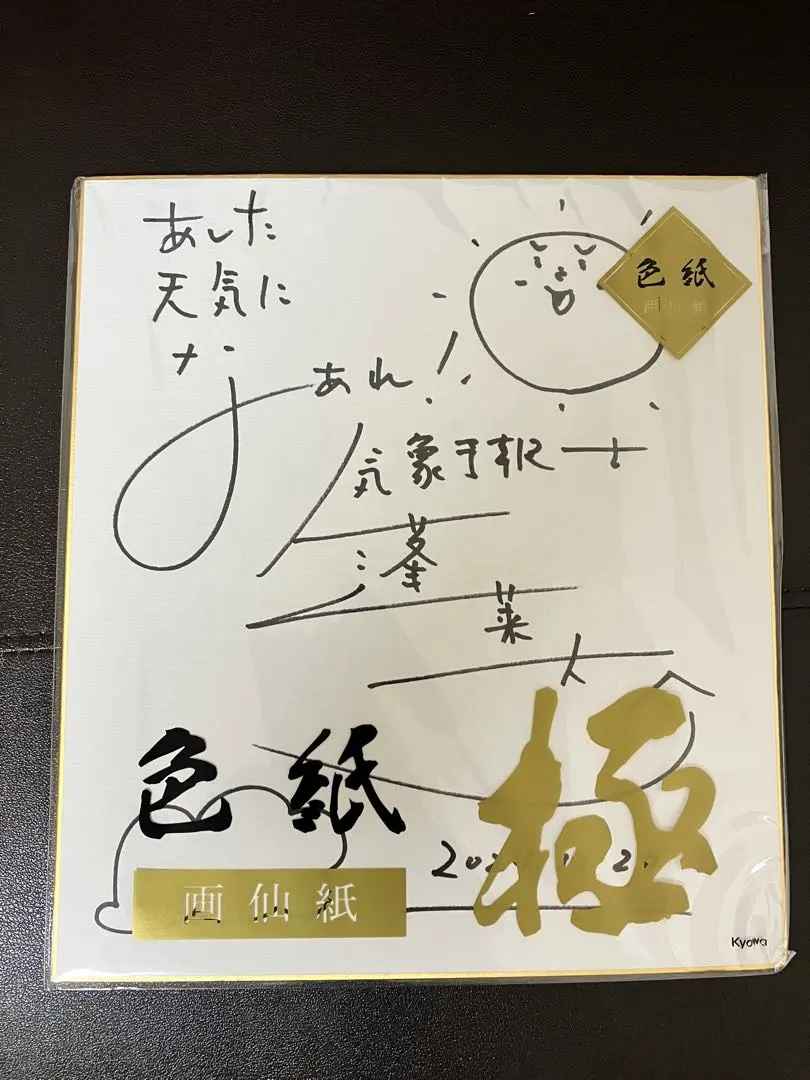 あした
天気に
なあれ!
色紙
画仙紙
気象予報士
蓬
莱
大
色紙
極
画仙紙
Kyowa